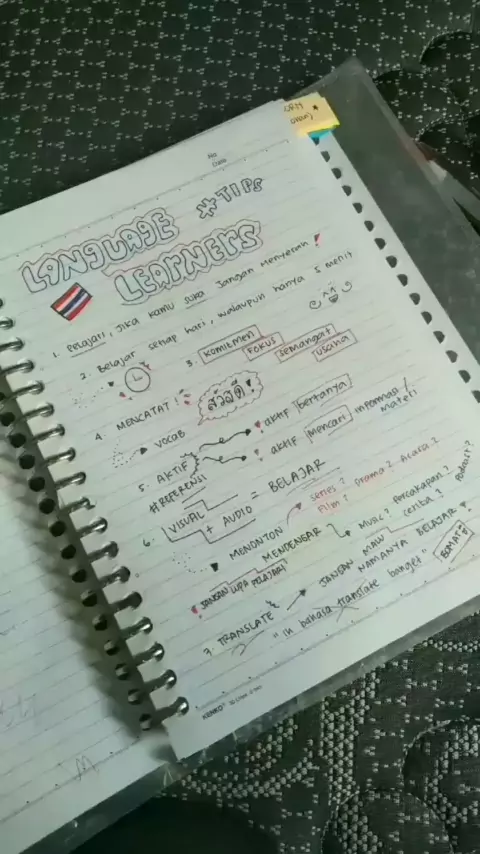 No
Date
LANGUAGE
*TIPS
LEARNERS
1. Pelajari, jika kamu suka jangan menyerah!
2. Belajar setiap hari, walaupun hanya 5 menit
3. komitmen
fokus
semangat
usaha
4. MENCATAT!
VOCAB
สวัสดี
5. AKTIF
! aktif bertanya
! aktif mencari informasi / materi
#REFERENSI
6. VISUAL + AUDIO = BELAJAR
MENONTON
series? drama? Acara?
Film?
MENDENGAR
Musik? percakapan? Podcast?
cerita?
! JANGAN LUPA PELAJARI
7. TRANSLATE
JANGAN MAU NAMANYA BELAJAR!
"in bahasa translate banget"
KENKO